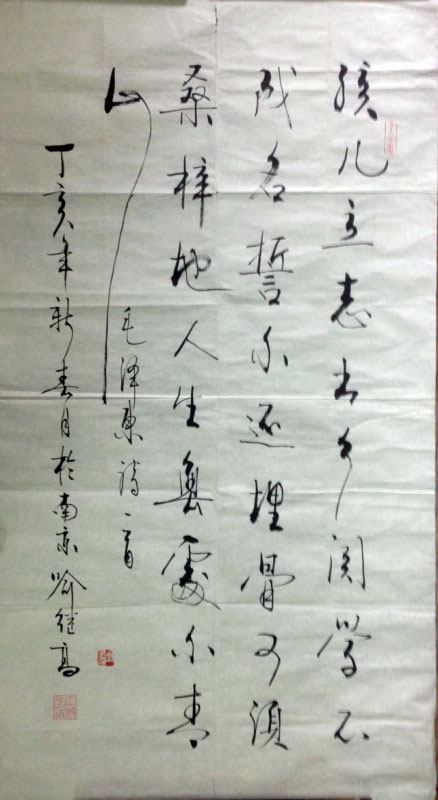 孩儿立志出乡関学不
成名誓不还埋骨何須
桑梓地人生無處不青
山
毛泽东詩一首
丁亥年新春月於南京喻继高